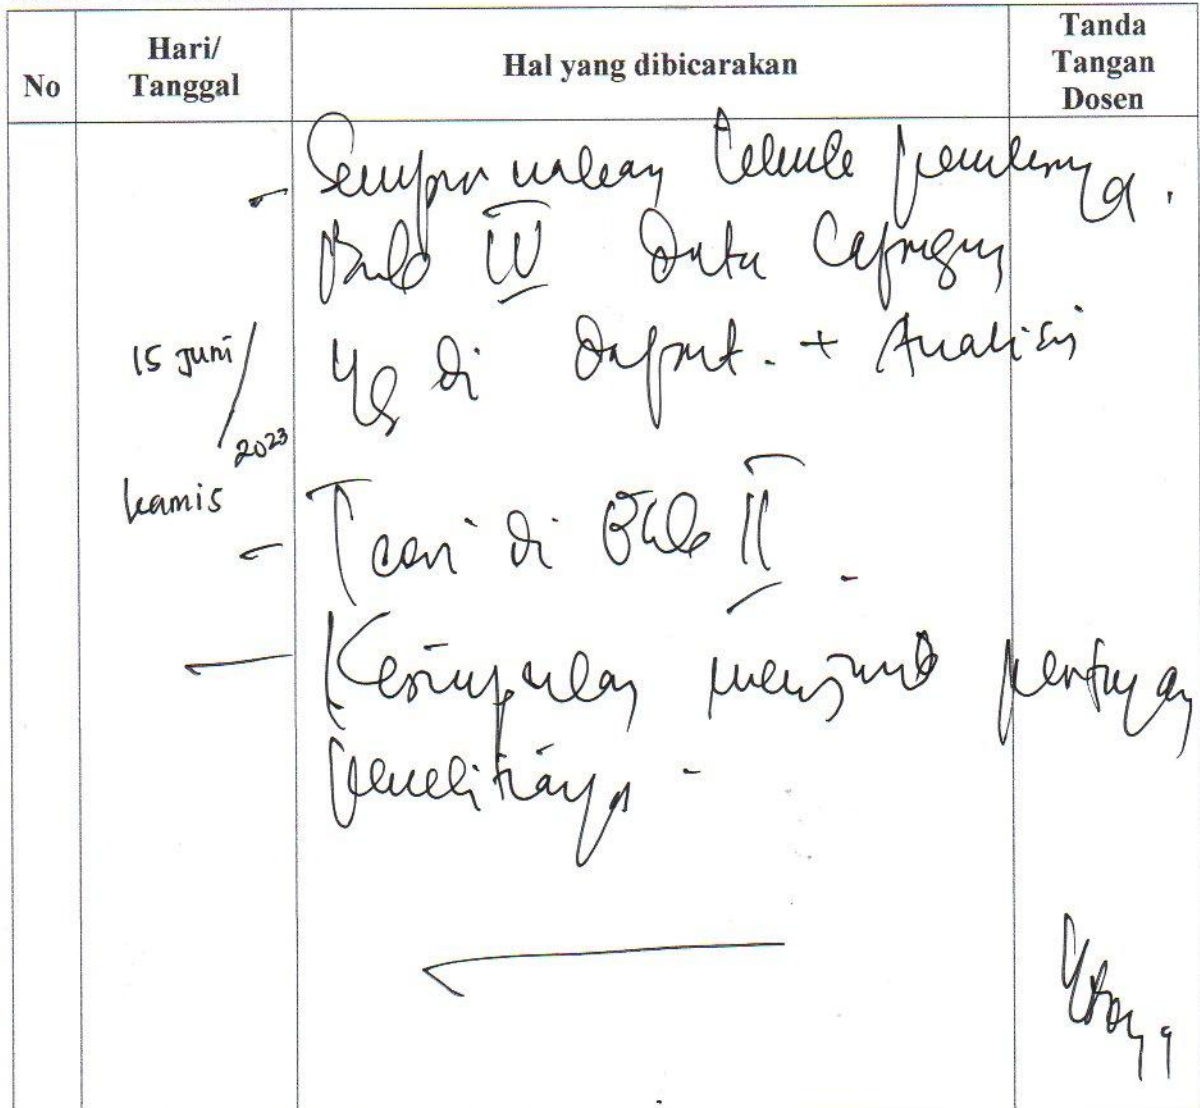 No Hari/ Tanggal Hal yang dibicarakan Tanda Tangan Dosen
- Sempurnakan teknik penulisnya.
Bab IV Data Lapangan
15 Juni / 2023
yg di dapat. + Analisis
Kamis
- Teori di Bab II.
- Kesimpulan menjawab pertanyaan
penelitiannya -